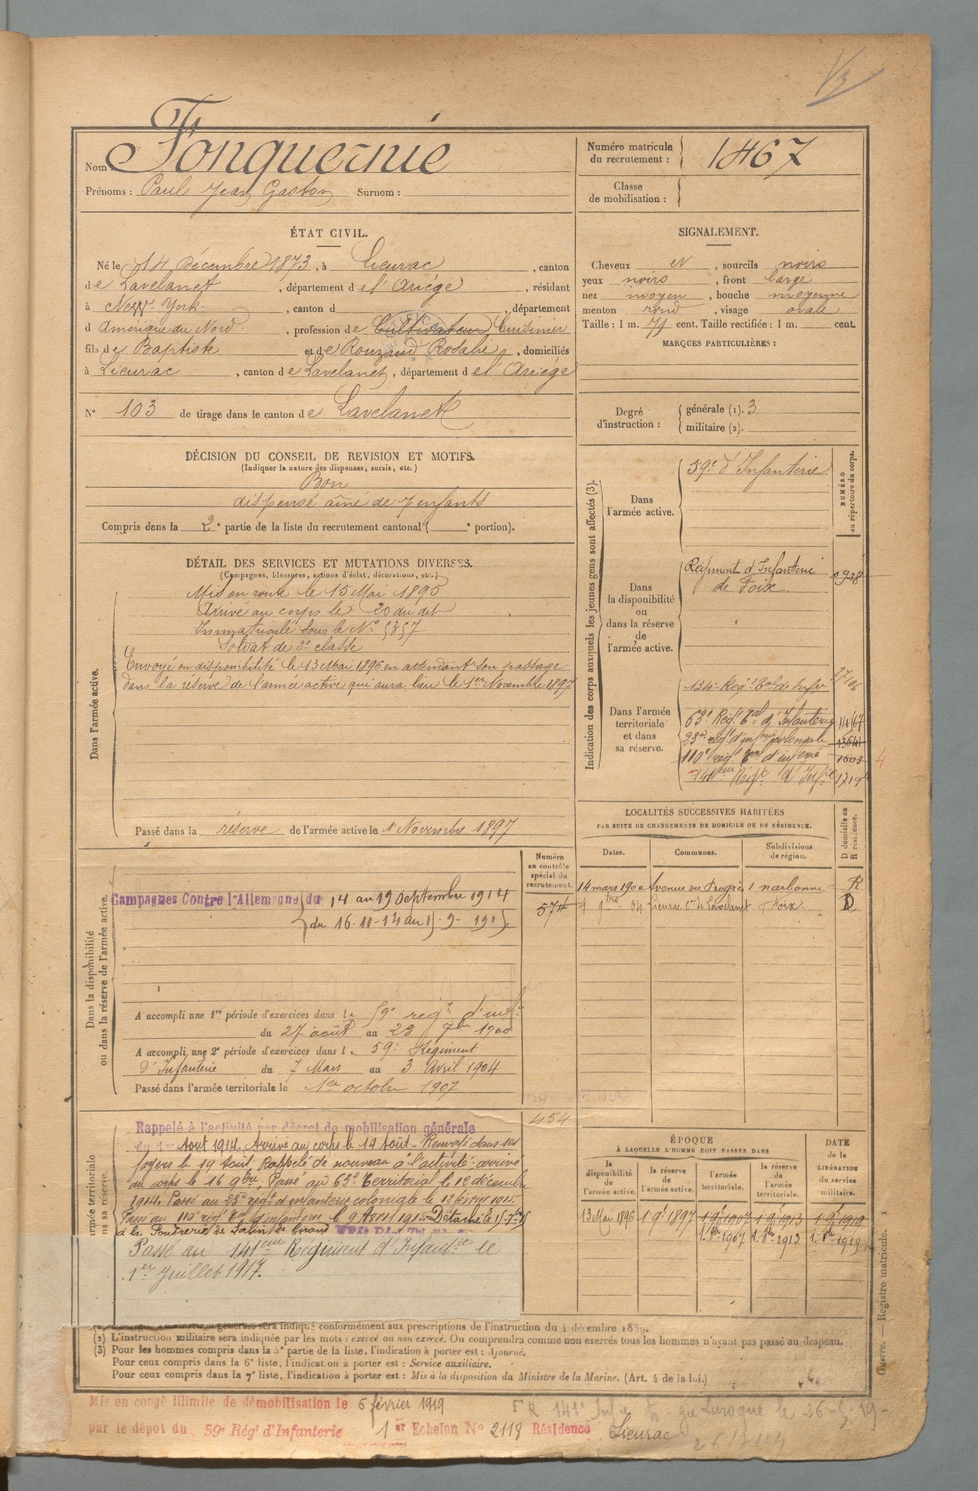 Nom Fonquernie
Prénoms : Paul Jean Gaston Surnom :
Numéro matricule du recrutement : 1467
Classe de mobilisation :
ÉTAT CIVIL.
Né le 14 Décembre 1873, à Lieurac, canton
de Lavelanet, département de l'Ariége, résidant
à New-York, canton d , département
d Amérique du Nord, profession de Cultivateur Cuisinier
fils de Baptiste et de Rouzaud Rosalie, domiciliés
à Lieurac, canton de Lavelanet, département de l'Ariege
N° 103 de tirage dans le canton de Lavelanet
SIGNALEMENT.
Cheveux et , sourcils noirs
yeux noirs , front large
nez moyen , bouche moyenne
menton rond , visage ovale
Taille : 1 m. cent. Taille rectifiée : 1 m. cent.
MARQUES PARTICULIÈRES :
Degré d'instruction : générale (1). 3
militaire (2).
DÉCISION DU CONSEIL DE REVISION ET MOTIFS.
(Indiquer la nature des dispenses, sursis, etc.)
Bon
dispensé aîné de 7 enfants
Compris dans la 2e partie de la liste du recrutement cantonal ( e portion).
DÉTAIL DES SERVICES ET MUTATIONS DIVERSES.
(Campagnes, blessures, actions d'éclat, décorations, etc.)
Dans l'armée active.
Mis en route le 15 Mai 1895
Arrivé au corps le 20 du dit
Immatriculé sous le N° 5357
Soldat de 2e classe
Envoyé en disponibilité le 13 Mai 1896 en attendant son passage
dans la réserve de l'armée active qui aura lieu le 1er Novembre 1897
Passé dans la réserve de l'armée active le 1 Novembre 1897
Indication des corps auxquels les jeunes gens sont affectés (3).
NUMÉRO au répertoire du corps.
Dans l'armée active.
59e d'Infanterie
Dans la disponibilité ou dans la réserve de l'armée active.
Régiment d'Infanterie
de Foix
Dans l'armée territoriale et dans sa réserve.
134e Régt Tal de Infie
63e Régt Tal d'Infanterie
23e régt d'infie coloniale
110e régt Tal d'infie
141eme Régt d'Infie
LOCALITÉS SUCCESSIVES HABITÉES
PAR SUITE DE CHANGEMENTS DE DOMICILE OU DE RÉSIDENCE.
Dates. Communes. Subdivisions de région. D domicile ou R résidence.
14 mars 1900 Avenue du Progrès 1 narbonne R
Lieurac Con de Lavelanet Foix D
Dans la disponibilité ou dans la réserve de l'armée active.
Numéro au contrôle spécial du recrutement.
574
Campagnes Contre l'Allemagne du 14 au 19 Septembre 1914
du 16-11-14 au
A accompli une 1re période d'exercices dans le 59e régt d'inf
du 27 août au 23 7bre 1900
A accompli une 2e période d'exercices dans le 59e Régiment
d'Infanterie du 7 Mars au 3 Avril 1904
Passé dans l'armée territoriale le 1er octobre 1907
454
Rappelé à l'activité par décret de mobilisation générale
du 1er Aout 1914. Arrivé au corps le 14 Août. Renvoyé dans ses
foyers le 19 Août. Rappelé de nouveau à l'activité; arrivé
au corps le 16 9bre. Passé au 63e Territorial le 12 décembre
1914. Passé au 23e régt d'infanterie coloniale le
Passé au 110e régt Tal d'infanterie le Détaché
à la Poudrerie de
Passé au 141eme Régiment d'Infantie le
1er Juillet 1917.
ÉPOQUE
À LAQUELLE L'HOMME DOIT PASSER DANS
DATE de la LIBÉRATION du service militaire.
la disponibilité de l'armée active. la réserve de l'armée active. l'armée territoriale. la réserve de l'armée territoriale.
13 Mai 1896 1 9bre 1897 1 9bre 1907 1 9bre 1913 1 9bre 1919
1. 8bre 1907 1. 8bre 1913 1. 8bre 1919
générale sera indiqué conformément aux prescriptions de l'instruction du 4 décembre 1889.
(2) L'instruction militaire sera indiquée par les mots : exercé ou non exercé. On comprendra comme non exercés tous les hommes n'ayant pas passé au drapeau.
(3) Pour les hommes compris dans la 5e partie de la liste, l'indication à porter est : Ajourné.
Pour ceux compris dans la 6e liste, l'indication à porter est : Service auxiliaire.
Pour ceux compris dans la 7e liste, l'indication à porter est : Mis à la disposition du Ministre de la Marine. (Art. 4 de la loi.)
Guerre. — Registre matricule.
Mis en congé illimité de démobilisation le 6 février 1919
par le dépôt du 59e Régt d'Infanterie 1er Echelon No 2118 Résidence Lieurac